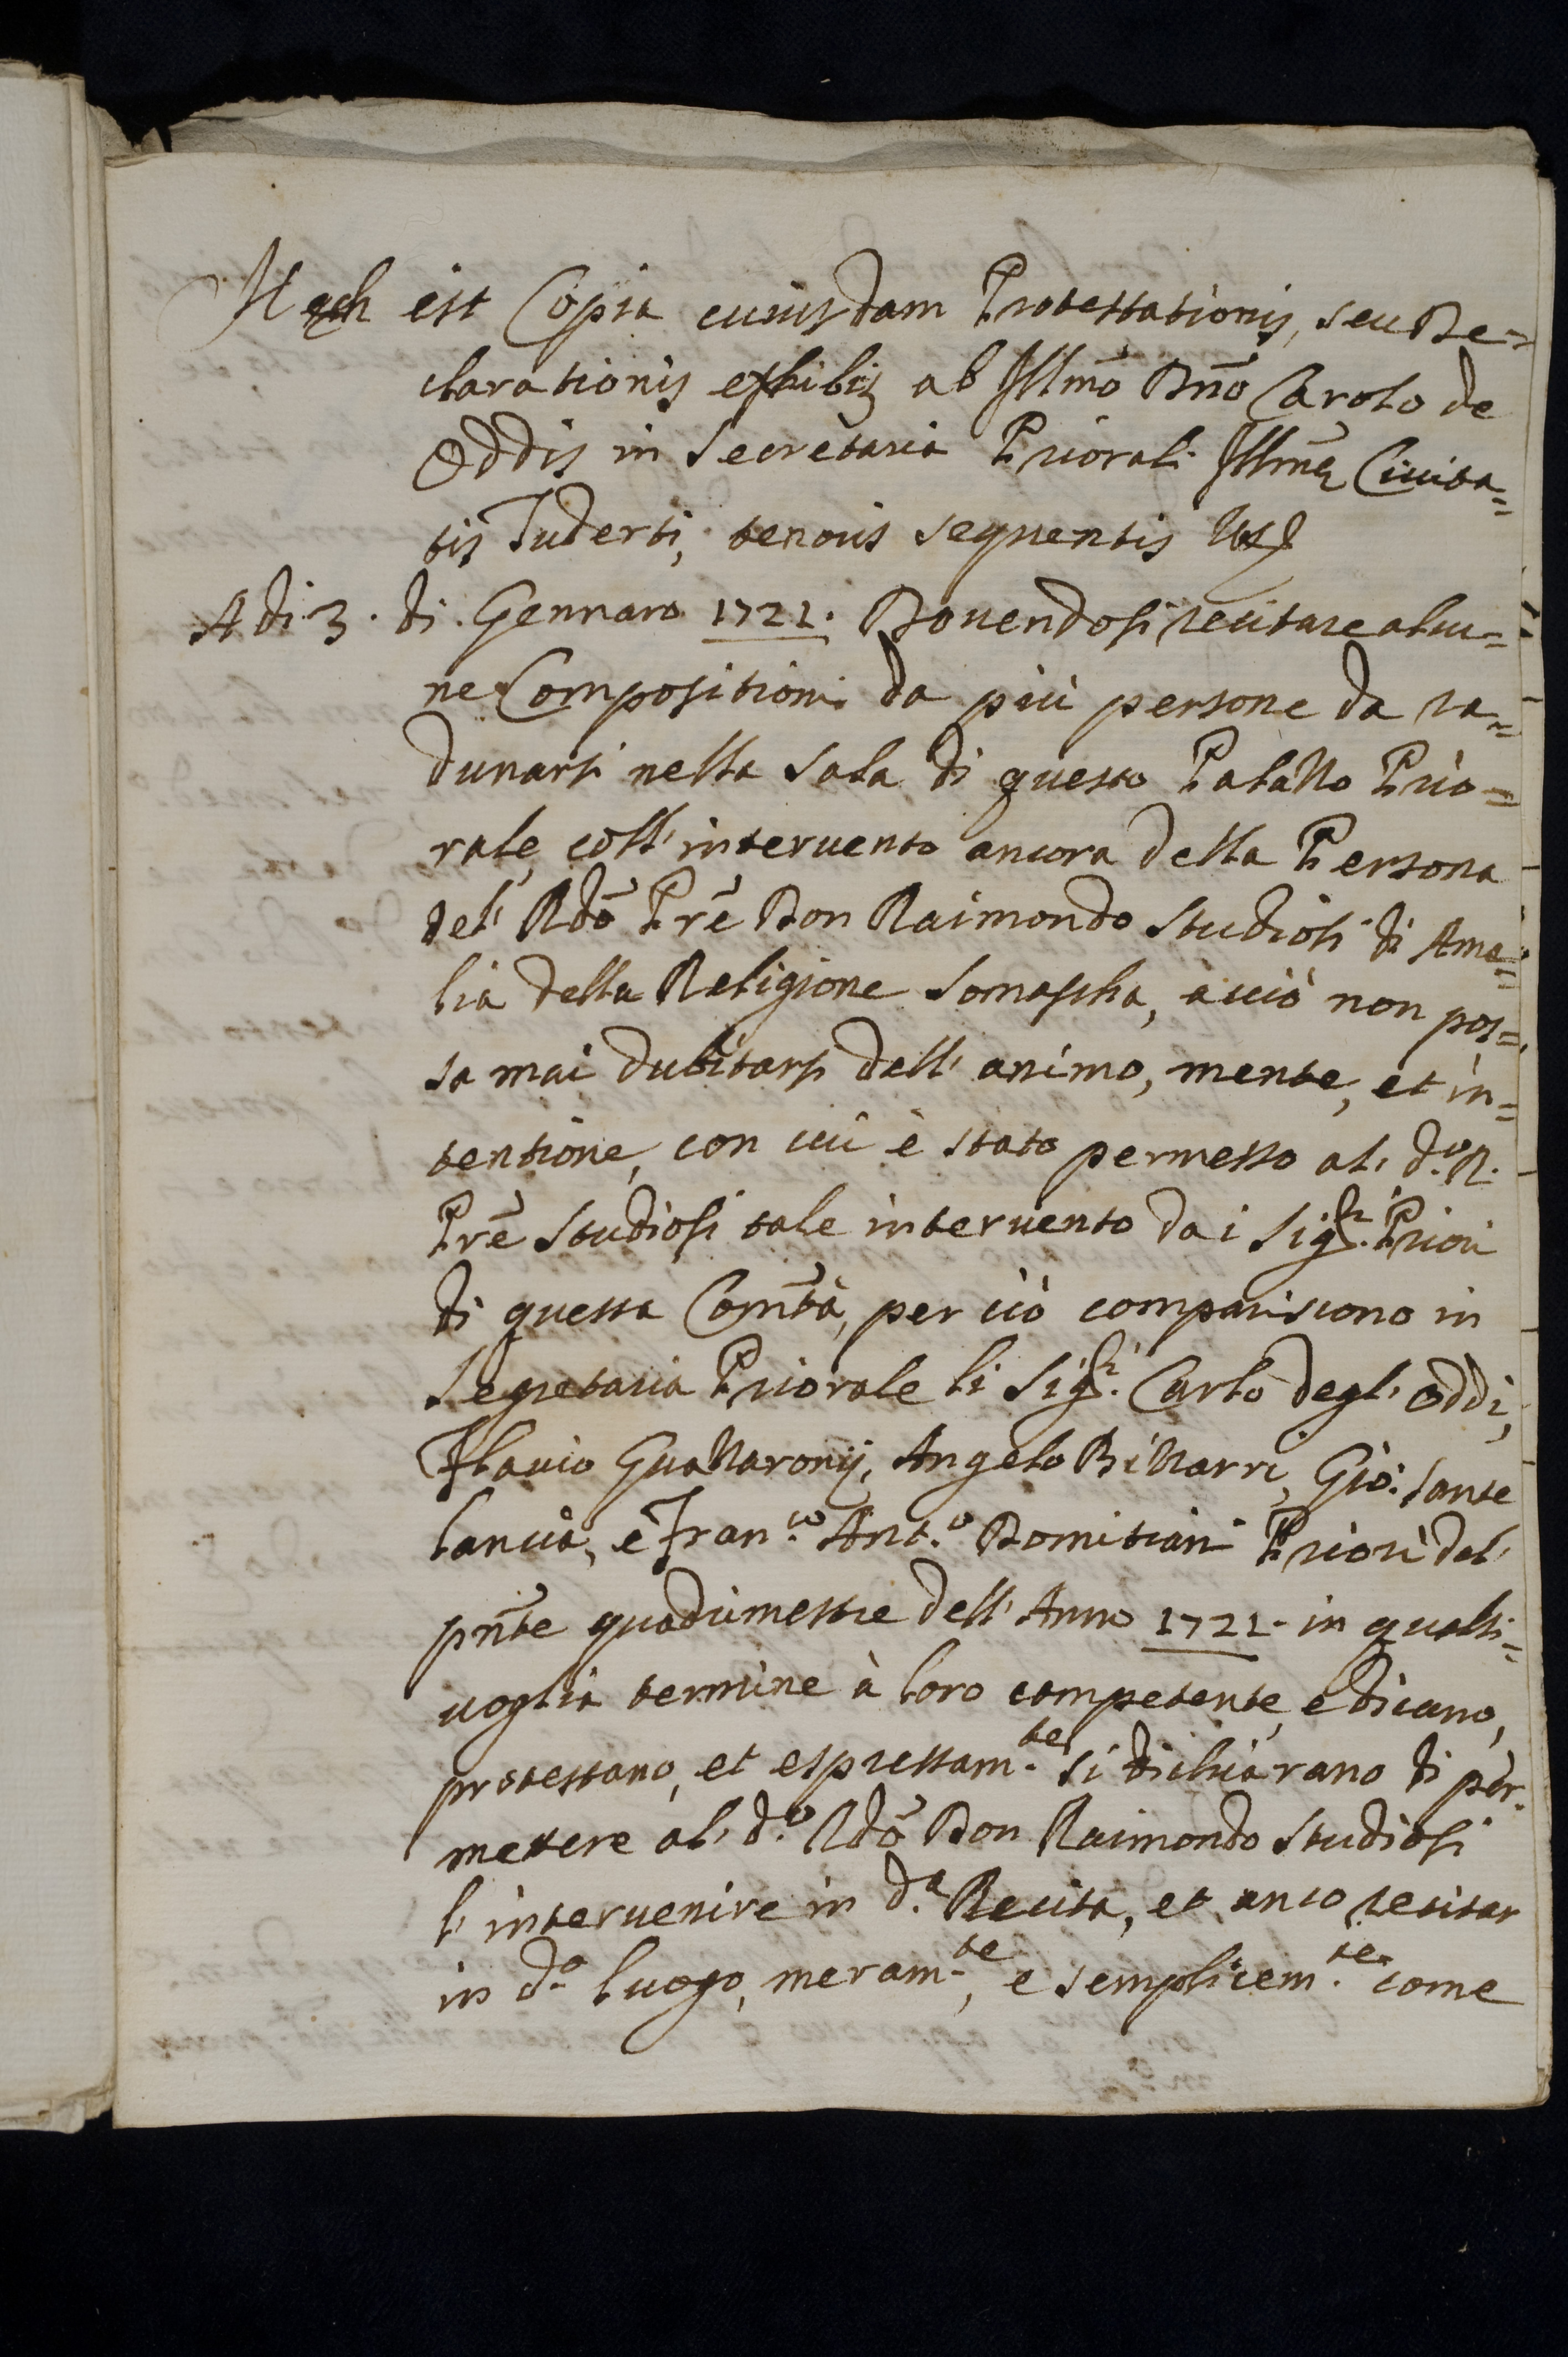 Haec est Copia cuiusdam Protestationis, seu De=
clarationis exhibitę ab Illmõ Dnõ Carolo de
Oddis in Secretaria Priorali Illmę Civita=
tis Tuderti, tenoris sequentis
A di 3. di Gennaro 1721. Dovendosi recitare alcu=
ne Compositioni da più persone da ra=
dunarsi nella Sala di questo Palazzo Prio=
rale, coll' intervento ancora della Persona
del' Rdõ Prẽ Don Raimondo Studiosi di Ame=
lia della Religione Somascha, acciò non pos=
sa mai dubitarsi dell' animo, mente, et in=
tentione, con cui è stato permesso al' d.o R.
Prẽ Studiosi tale intervento da i Sig.ri Priori
di questa Com̃tà, per ciò compariscono in
Segretaria Priorale li Sig.ri Carlo degl' Oddi,
Flavio Guazzaronij, Angelo Bizzarri, Gio: Sante
Lancia, e Fran.co Ant.o Domitiani Priori del'
pñte quadrimestre dell' Anno 1721. in qualsi=
voglia termine à loro competente, e dicano,
protestano, et espressam.te si dichiarano di per=
mettere al' d.o Rdõ Don Raimondo Studiosi
l' intervenire in d.a Recita, et anco recitar
in d.o luogo, meram.te, e semplicem.te come